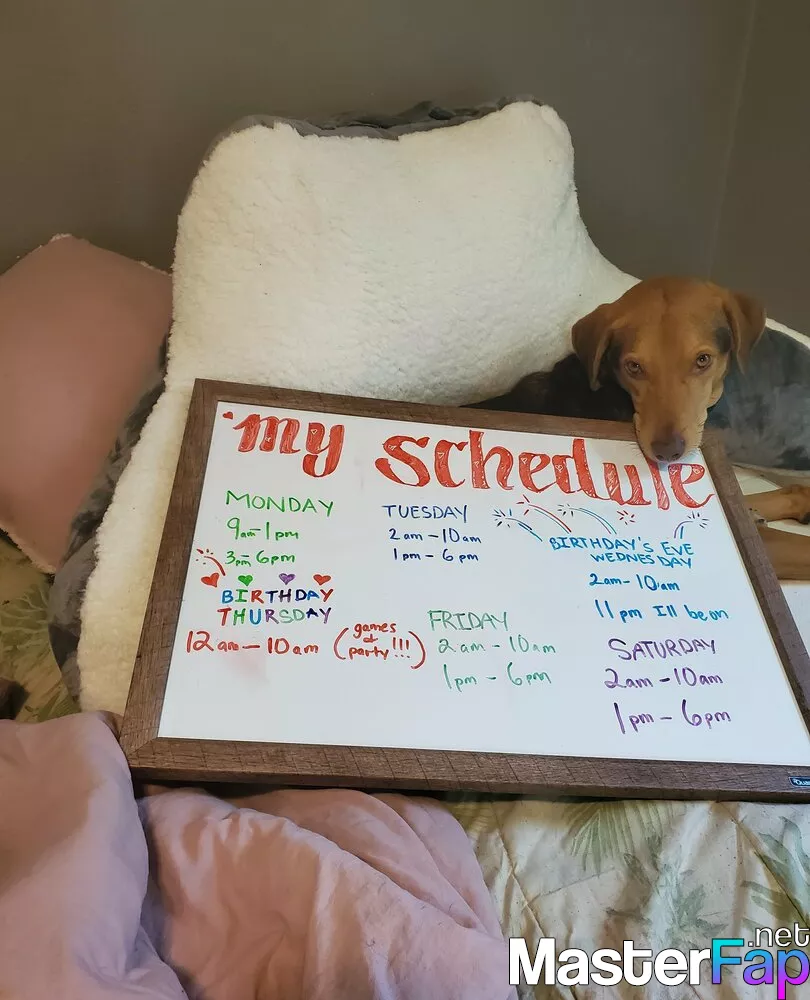 my schedule
MONDAY
9am-1pm
3pm-6pm
TUESDAY
2am-10am
1pm-6pm
BIRTHDAY'S EVE
WEDNESDAY
2am-10am
11pm I'll be on
BIRTHDAY
THURSDAY
12am-10am (games & party!!!)
FRIDAY
2am-10am
1pm-6pm
SATURDAY
2am-10am
1pm-6pm
MasterFap.net